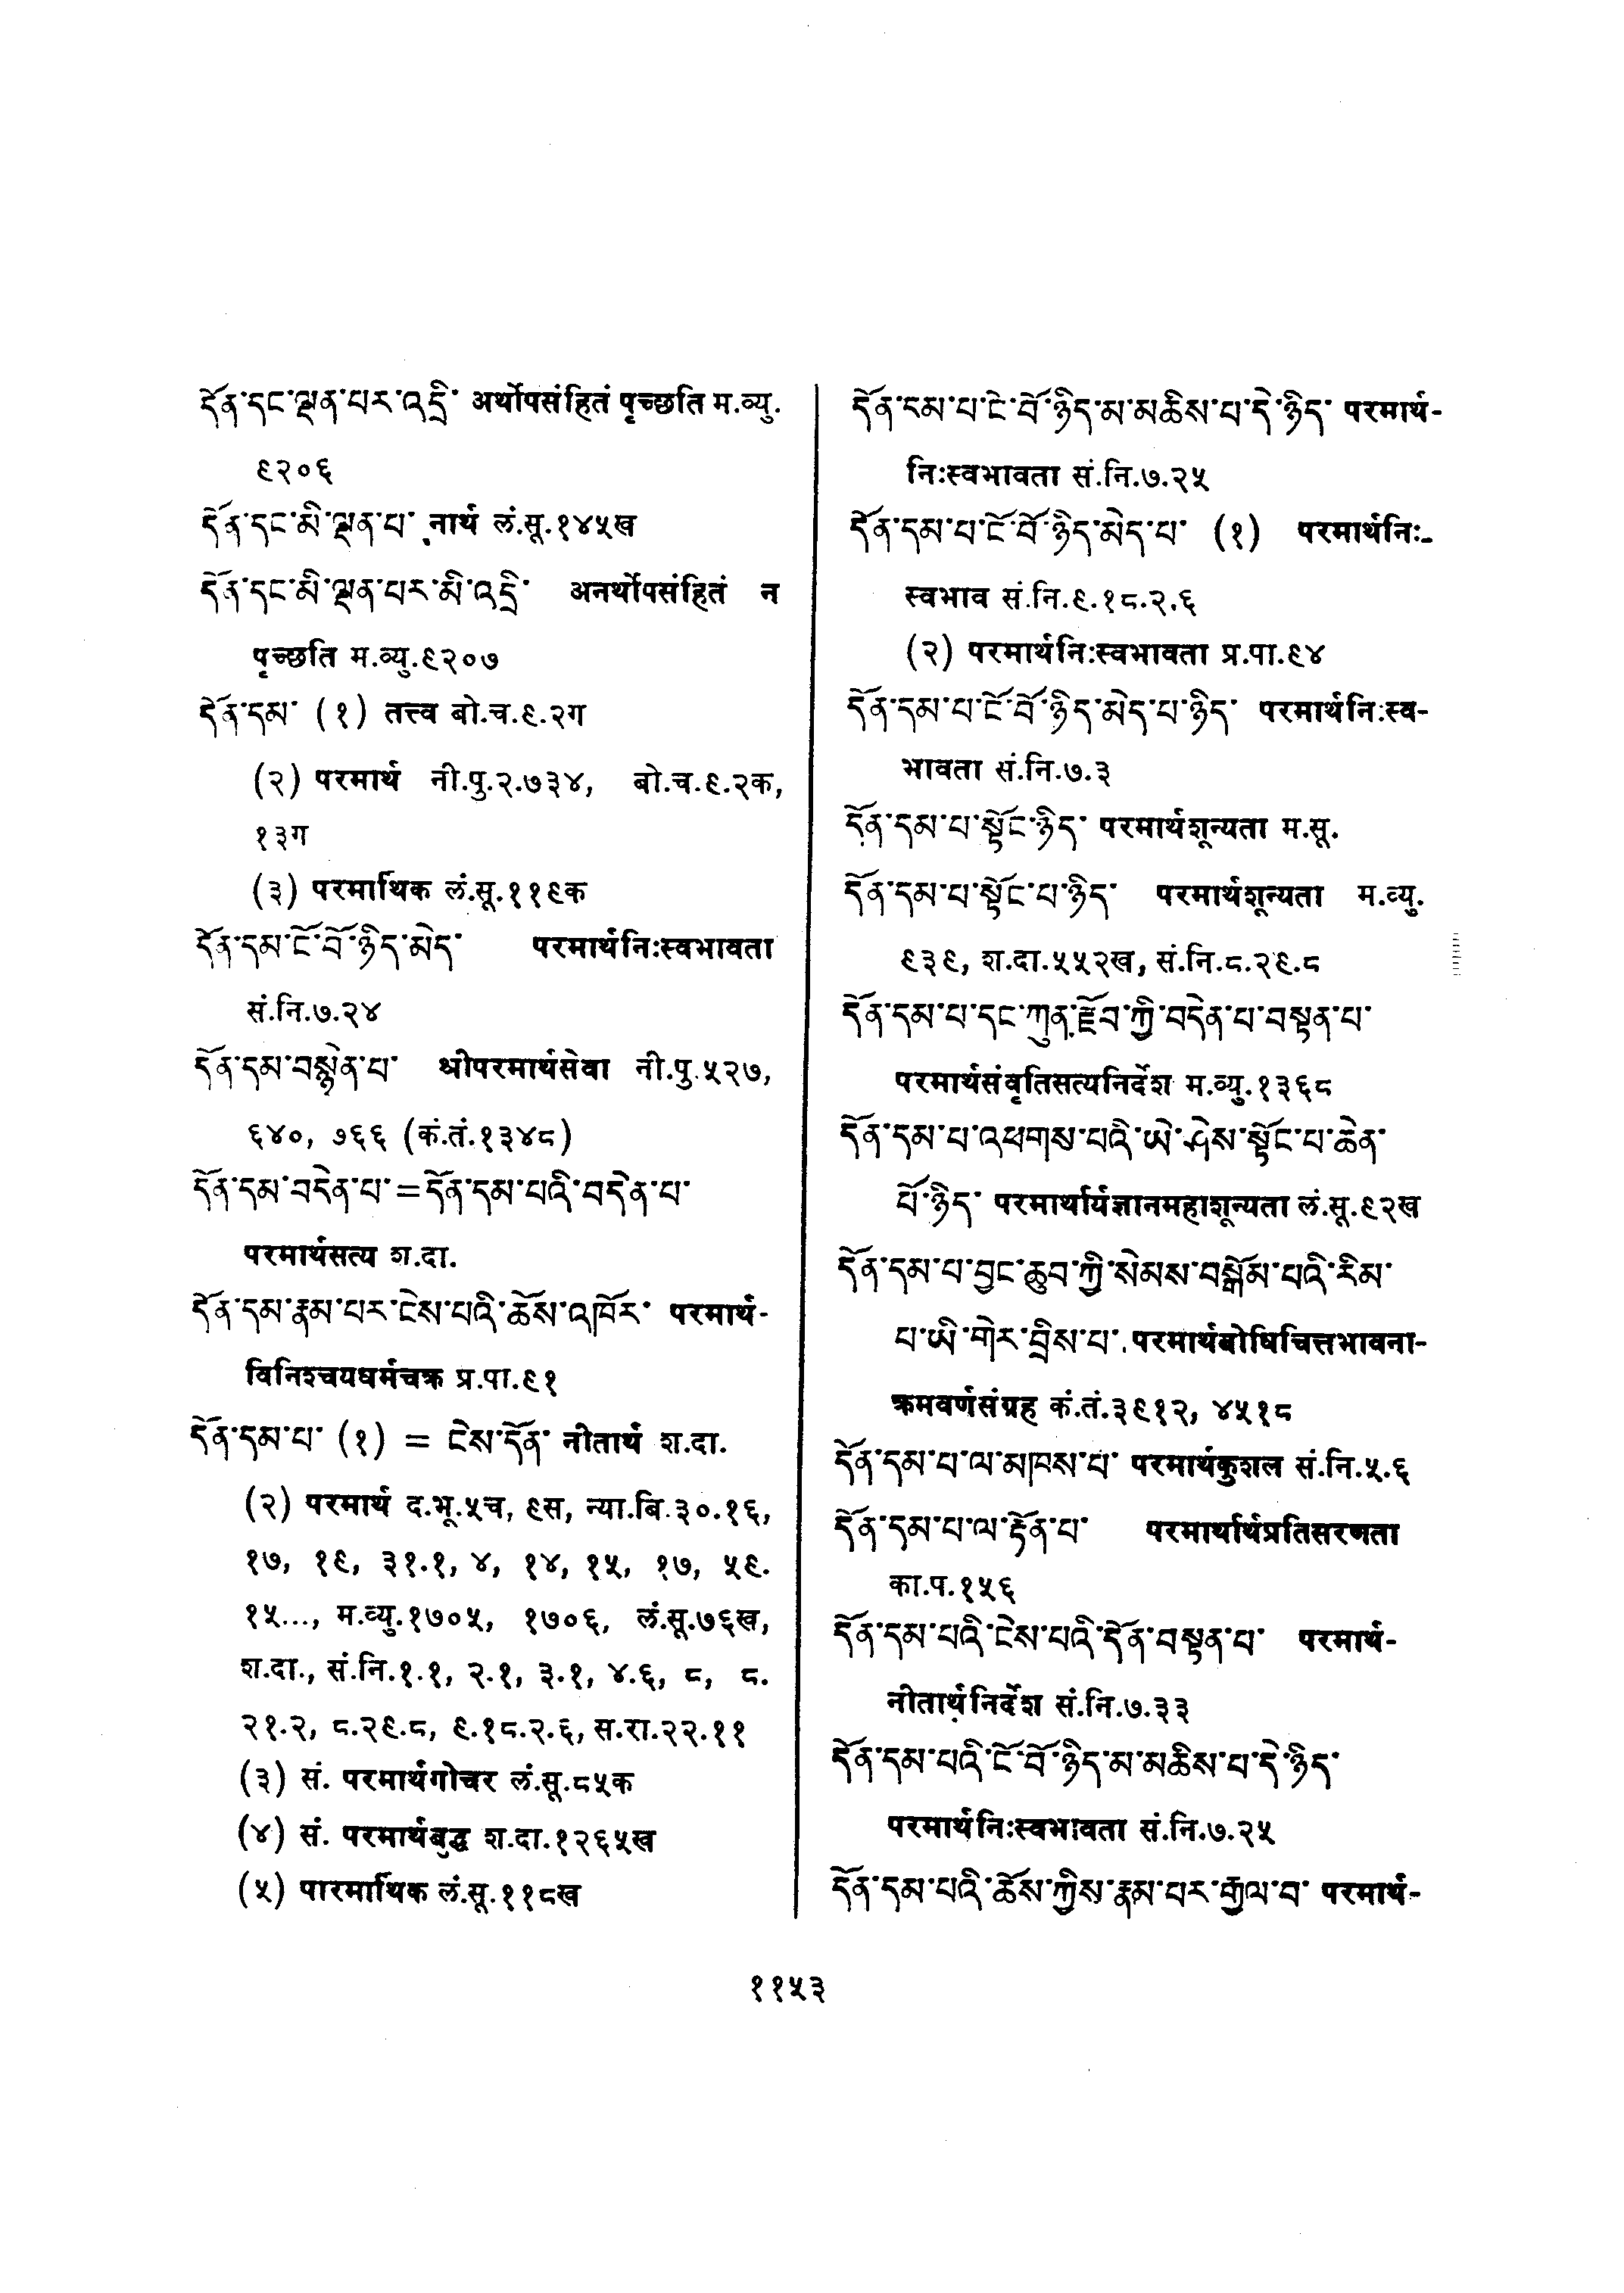 དོན་དང་ལྡན་པར་འདྲི་ अर्थोपसंहितं पृच्छति म.व्यु.
९२०६
དོན་དང་མི་ལྡན་པ་ नार्थ लं.सू.१४५ख
དོན་དང་མི་ལྡན་པར་མི་འདྲི་ अनर्थोपसंहितं न
पृच्छति म.व्यु.९२०७
དོན་དམ་ (१) तत्त्व बो.च.९.२ग
(२) परमार्थ नी.पु.२.७३४, बो.च.९.२क,
१३ग
(३) परमार्थिक लं.सू.११९क
དོན་དམ་ངོ་བོ་ཉིད་མེད་ परमार्थनिःस्वभावता
सं.नि.७.२४
དོན་དམ་བསྙེན་པ་ श्रीपरमार्थसेवा नी.पु.५२७,
६४०, ७६६ (कं.तं.१३४८)
དོན་དམ་བདེན་པ་=དོན་དམ་པའི་བདེན་པ་
परमार्थसत्य श.दा.
དོན་དམ་རྣམ་པར་ངེས་པའི་ཆོས་འཁོར་ परमार्थ-
विनिश्चयधर्मचक्र प्र.पा.९१
དོན་དམ་པ་ (१) = ངེས་དོན་ नीतार्थ श.दा.
(२) परमार्थ द.भू.५च, ९स, न्या.बि.३०.१६,
१७, १९, ३१.१, ४, १४, १५, १७, ५९.
१५..., म.व्यु.१७०५, १७०६, लं.सू.७६ख,
श.दा., सं.नि.१.१, २.१, ३.१, ४.६, ८, ८.
२१.२, ८.२९.८, ९.१८.२.६, स.रा.२२.११
(३) सं. परमार्थगोचर लं.सू.८५क
(४) सं. परमार्थबुद्ध श.दा.१२६५ख
(५) पारमार्थिक लं.सू.११८ख
དོན་དམ་པ་ངེ་བོ་ཉིད་མ་མཆིས་པ་དེ་ཉིད་ परमार्थ-
निःस्वभावता सं.नि.७.२५
དོན་དམ་པ་ངོ་བོ་ཉིད་མེད་པ་ (१) परमार्थनिः-
स्वभाव सं.नि.९.१८.२.६
(२) परमार्थनिःस्वभावता प्र.पा.९४
དོན་དམ་པ་ངོ་བོ་ཉིད་མེད་པ་ཉིད་ परमार्थनिःस्व-
भावता सं.नि.७.३
དོན་དམ་པ་སྟོང་ཉིད་ परमार्थशून्यता म.सू.
དོན་དམ་པ་སྟོང་པ་ཉིད་ परमार्थशून्यता म.व्यु.
९३९, श.दा.५५२ख, सं.नि.८.२९.८
དོན་དམ་པ་དང་ཀུན་རྫོབ་ཀྱི་བདེན་པ་བསྟན་པ་
परमार्थसंवृतिसत्यनिर्देश म.व्यु.१३६८
དོན་དམ་པ་འཕགས་པའི་ཡེ་ཤེས་སྟོང་པ་ཆེན་
པོ་ཉིད་ परमार्थार्यज्ञानमहाशून्यता लं.सू.९२ख
དོན་དམ་པ་བྱང་ཆུབ་ཀྱི་སེམས་བསྒོམ་པའི་རིམ་
པ་ཡི་གེར་བྲིས་པ་ परमार्थबोधिचित्तभावना-
क्रमवर्णसंग्रह कं.तं.३९१२, ४५१८
དོན་དམ་པ་ལ་མཁས་པ་ परमार्थकुशल सं.नि.५.६
དོན་དམ་པ་ལ་རྟོན་པ་ परमार्थार्थप्रतिसरणता
का.प.१५६
དོན་དམ་པའི་ངེས་པའི་དོན་བསྟན་པ་ परमार्थ-
नीतार्थनिर्देश सं.नि.७.३३
དོན་དམ་པའི་ངོ་བོ་ཉིད་མ་མཆིས་པ་དེ་ཉིད་
परमार्थनिःस्वभावता सं.नि.७.२५
དོན་དམ་པའི་ཆོས་ཀྱིས་རྣམ་པར་རྒྱལ་བ་ परमार्थ-
११५३